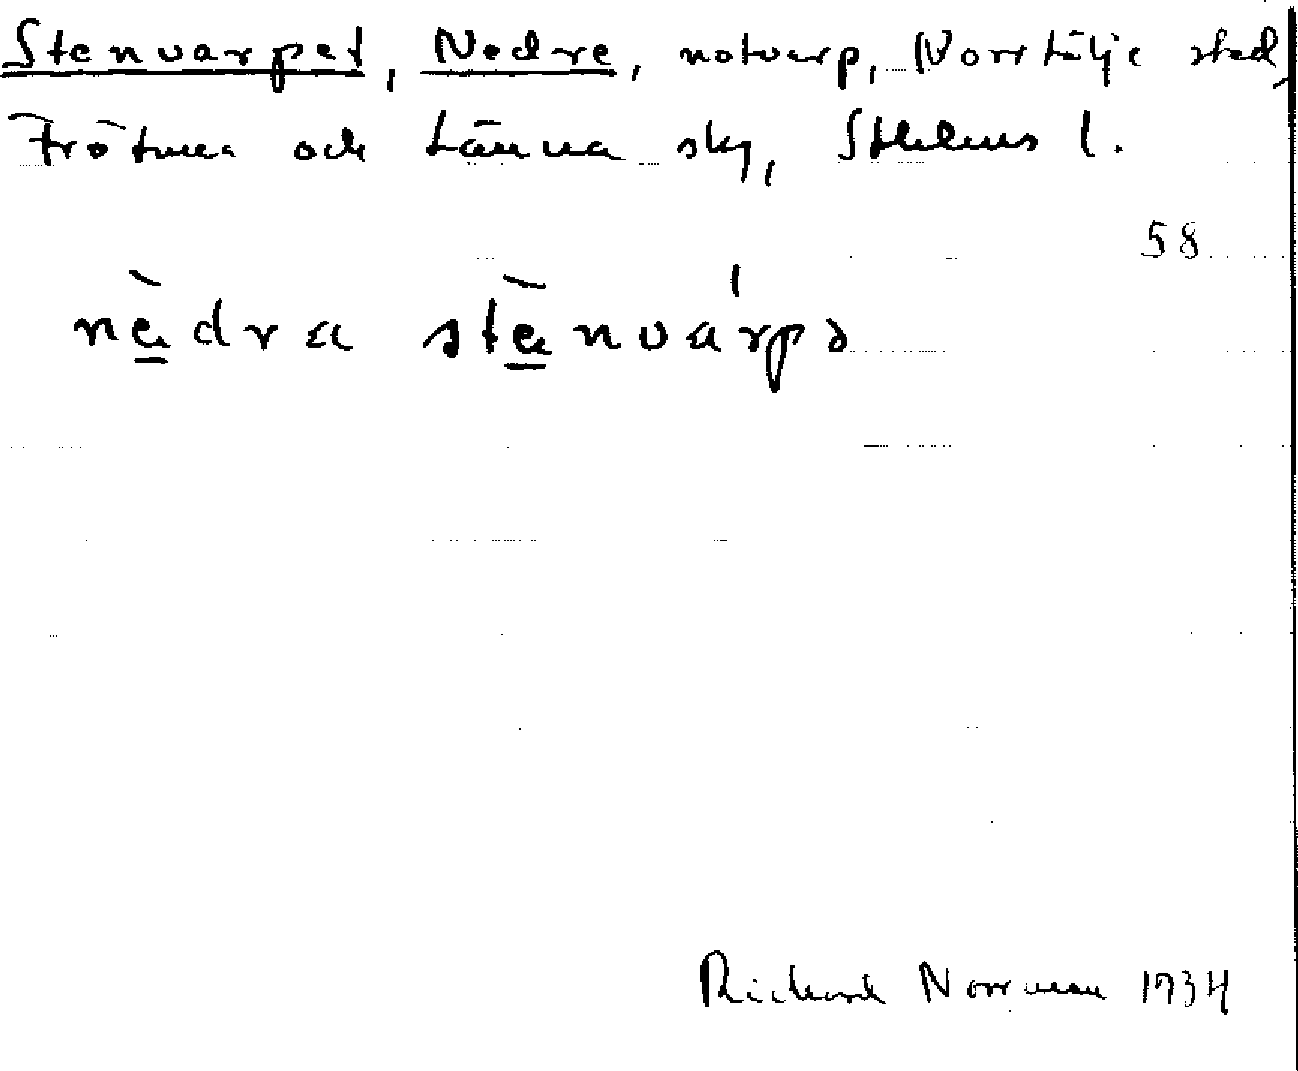 Stenvarpet, Nedre, notvarp, Norrtälje stad,
Frötuna och Länna sky, Sthlms l.
58
nèdra stènvárpə
Richard Norrman 1934